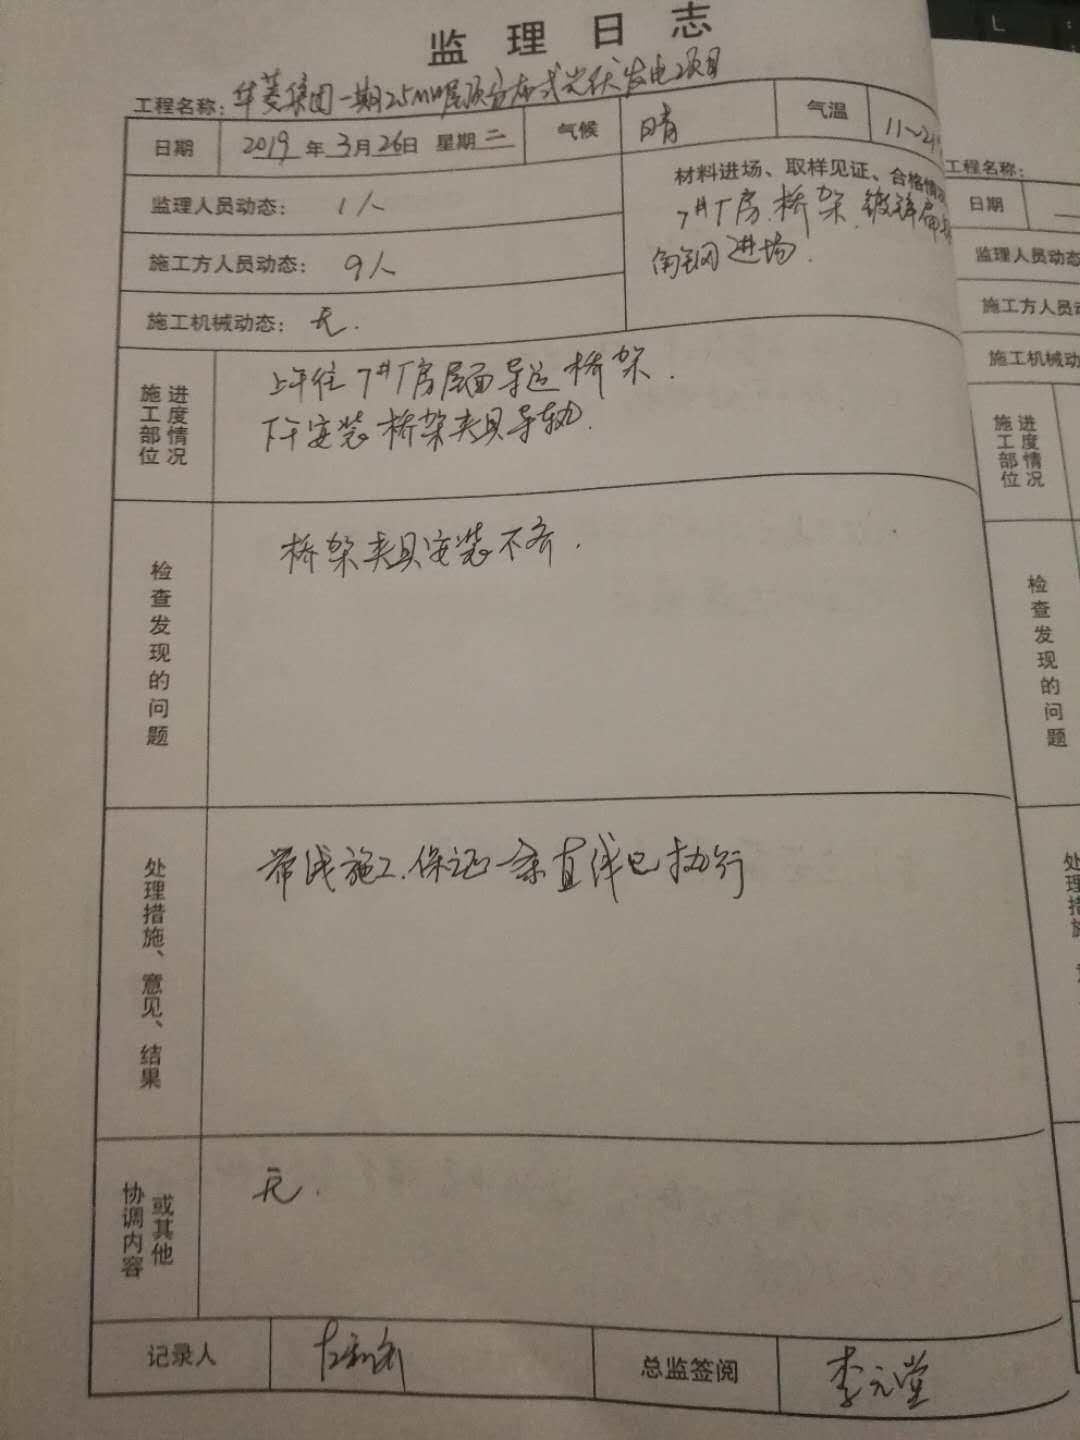 监理日志
工程名称：华菱集团一期25MW屋顶分布式光伏发电项目
日期 2019年3月26日 星期二 气候 晴 气温 11~21
监理人员动态： 1人
施工方人员动态： 9人
施工机械动态： 无.
材料进场、取样见证、合格情况
7#厂房.桥架.镀锌扁
角钢进场.
施工部位进度情况
上午往7#厂房屋面导运桥架.
下午安装桥架夹具导轨.
检查发现的问题
桥架夹具安装不齐.
处理措施、意见、结果
带线施工.保证一条直线已执行
协调内容或其他
无.
记录人
总监签阅 李元堂
工程名称：
日期
监理人员动态
施工方人员
施工机械动
施工部位进度情况
检查发现的问题
处理措施
L